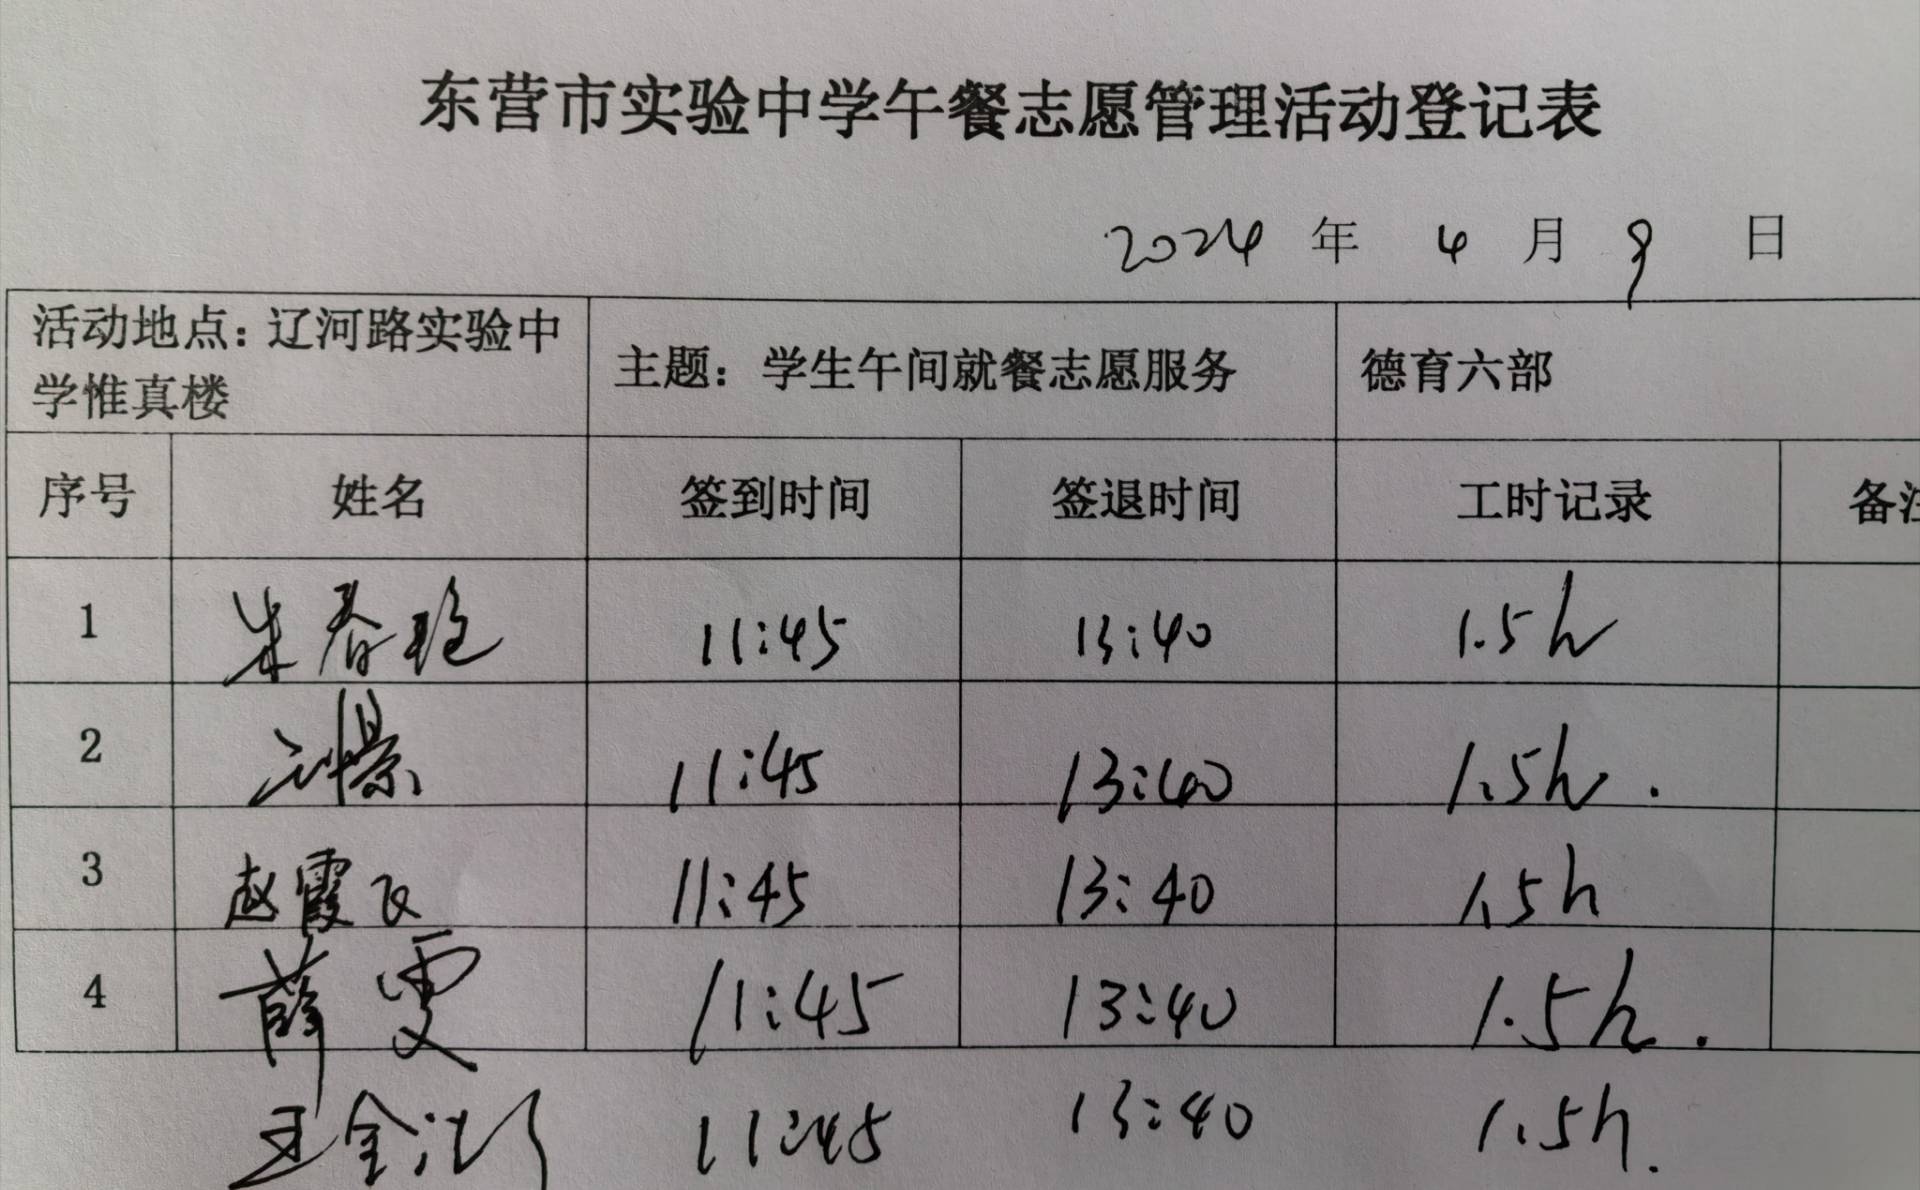 东营市实验中学午餐志愿管理活动登记表
2024 年 4 月 9 日
活动地点：辽河路实验中学惟真楼 主题：学生午间就餐志愿服务 德育六部
序号 姓名 签到时间 签退时间 工时记录 备注
1 朱春 11:45 13:40 1.5h
2 刘景 11:45 13:40 1.5h.
3 赵霞飞 11:45 13:40 1.5h
4 薛雯 11:45 13:40 1.5h.
王金 11:45 13:40 1.5h.